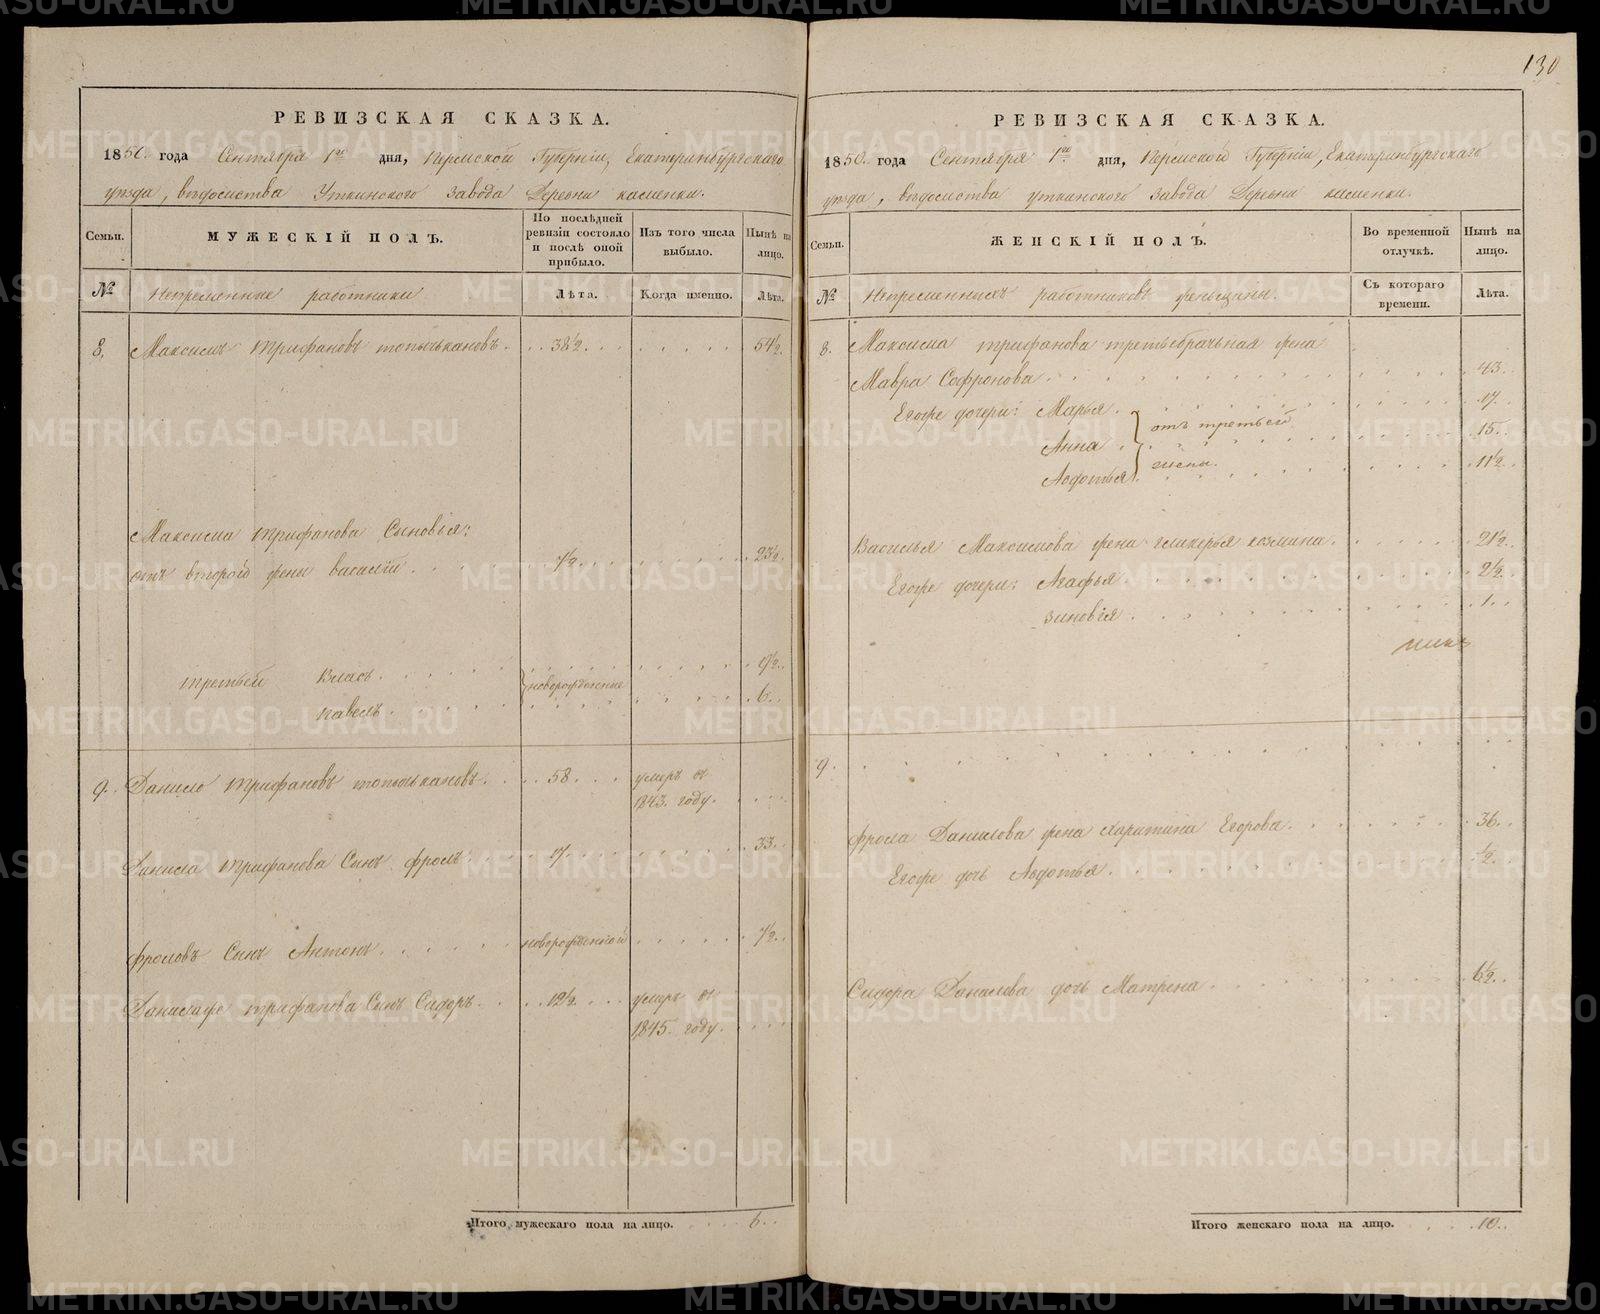 130
РЕВИЗСКАЯ СКАЗКА.
1850. года Сентября 1го дня, Пермской Губернiи, Екатеринбургскаго
уѣзда, вѣдомства Уткинского завода Деревни каменки.
Семьи.
МУЖЕСКIЙ ПОЛЪ.
По послѣдней ревизiи состояло и послѣ оной прибыло.
Изъ того числа выбыло.
Нынѣ на лицо.
№
Непременные работники
Лѣта.
Когда именно.
Лѣта.
8. Максимъ трифановъ 38½ 54½
Максима трифанова Сыновья:
отъ второй жены василiй 7½ 23½
третьей Власъ новорожденные 9½
павелъ 6
9. Данило трифановъ 58 умеръ въ
1843. году.
Данила трифанова Сынъ фролъ 17 33
фроловъ Сынъ Антонъ новорожденной 7½
Данилаже трифанова Сынъ Сидоръ 12½ умеръ въ
1845. году.
Итого мужескаго пола на лицо. 6
РЕВИЗСКАЯ СКАЗКА.
1850. года Сентября 1го дня, Пермской Губернiи, Екатеринбургскаго
уѣзда, вѣдомства уткинского завода Деревни каменки.
Семьи.
ЖЕНСКIЙ ПОЛЪ.
Во временной отлучкѣ.
Нынѣ на лицо.
№
Непременныхъ работниковъ женщины.
Съ котораго времени.
Лѣта.
8. Максима трифанова третьебрачная жена
Мавра Софронова 43
Егоже дочери: Марья 17
отъ третьей
Анна 15
жены
Авдотья 11½
Василья Максимова жена гликерья козмина 21½
Егоже дочери: Агафья 2½
зиновiя 1
9.
фрола Данилова жена харитина Егорова 36
Егоже дочь Авдотья ½
Сидора Данилова дочь Матрена 6½
Итого женскаго пола на лицо. 10
METRIKI.GASO-URAL.RU